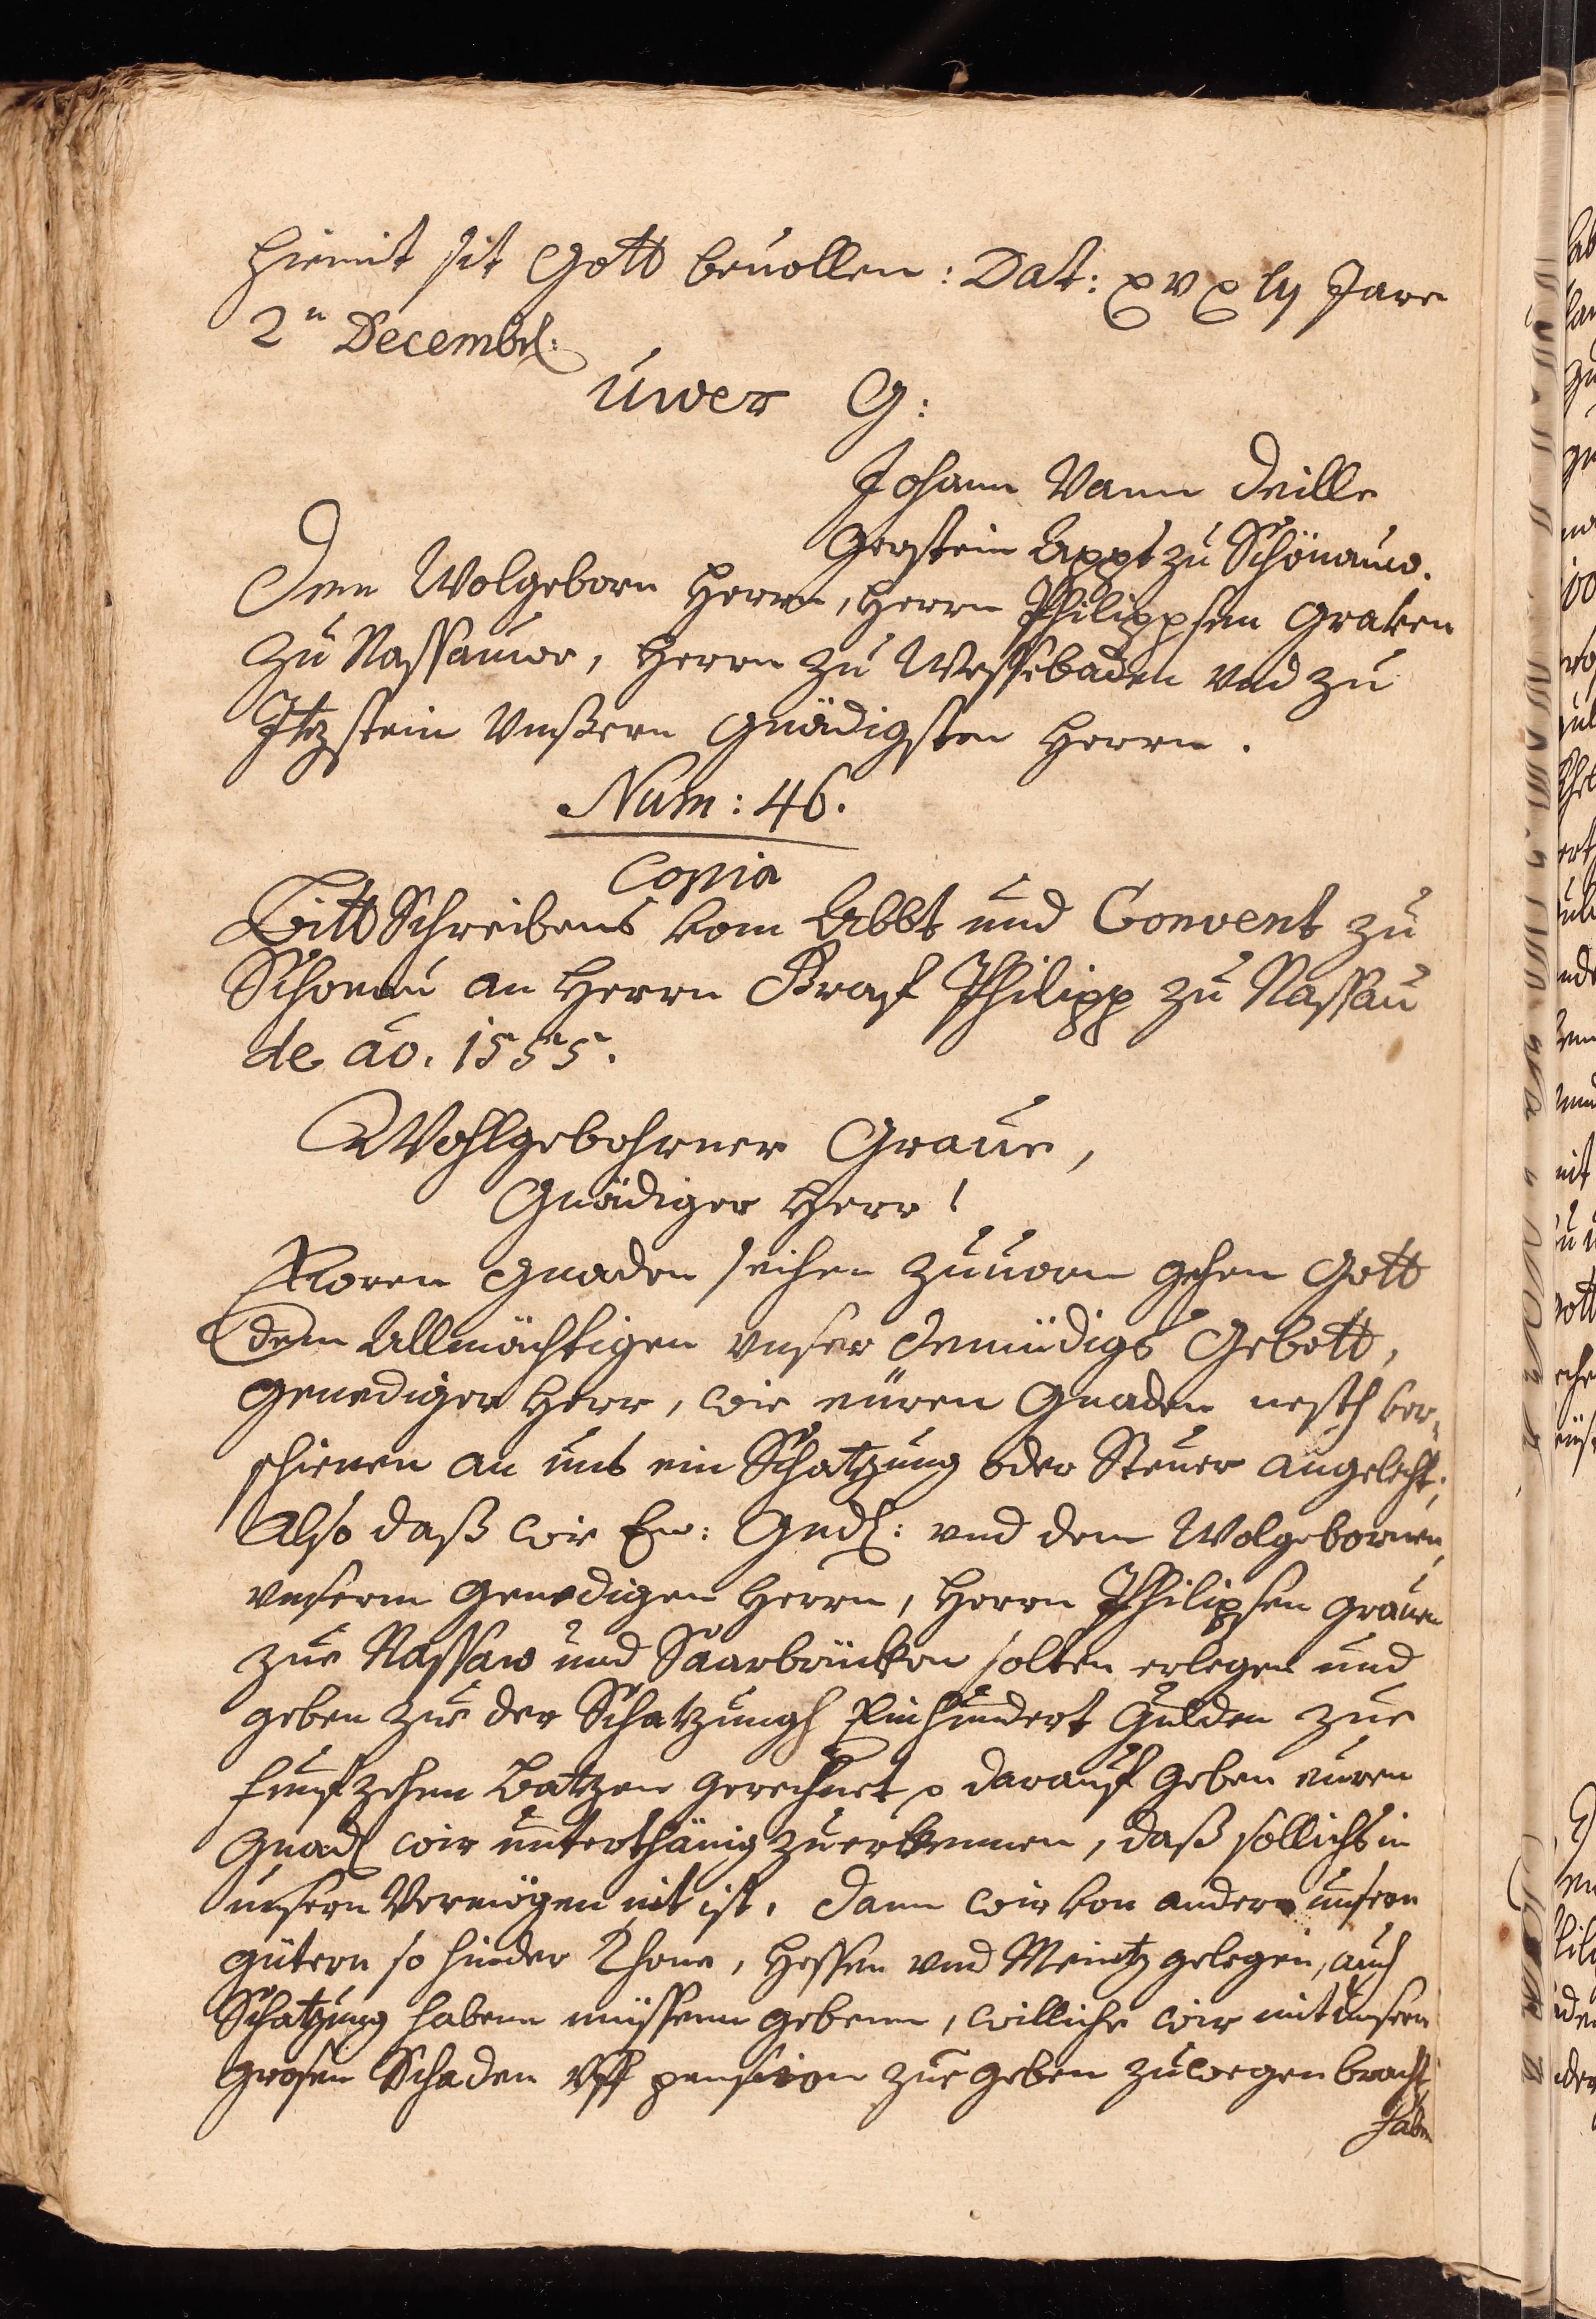 hiemit sit Gott beuollen: Dat: xv x ly Jare
2n Decembr:
Uwer G:
Johann Vann Deille
Gerstein Appt zu Schönauw.
Dem Wolgeborn Herrn, Herrn Philippsen Graven
zu Nassauwe, Herrn zu Wessebaden vnd zu
Itzstein Vnßern Gnädigsten Herrn.
Num: 46.
Copia
BittSchreibens vom Abbt und Convent zu
Schonau an Herrn Graf Philipp zu Nassau
de ao. 1555.
Wohlgebohrner Graue,
Gnädiger Herr!
Euren Gnaden seihen zuuorn gehen Gott
dem Allmächtigen vnser demüdigs Gebett,
Genediger Herr, wie eüren Gnaden nesth ver-
schienen an uns ein Schatzung oder Steuer angelecht,
Also daß wir Ew: Gnd: und dem Wolgebornen,
vnserm Genedigen Herrn, Herrn Philipsen grauen
zue Nassaw und Saarbrücken solten erlegen und
geben zue der Schatzungh Einhundert Gulden zue
funfzehen Batzen gerechnet, darauf geben euren
Gnad wir unterthänig zuerkennen, daß sollichs in
unsern Vermögen nit ist. dann wir von andern unsern
gütern so hinder Rhone, Hessen vnd Meintz gelegen, auch
Schatzung habenn müssenn gebenn, williche wir mit unsern
grosen Schaden vff pension zue geben zuwegen bracht
haben